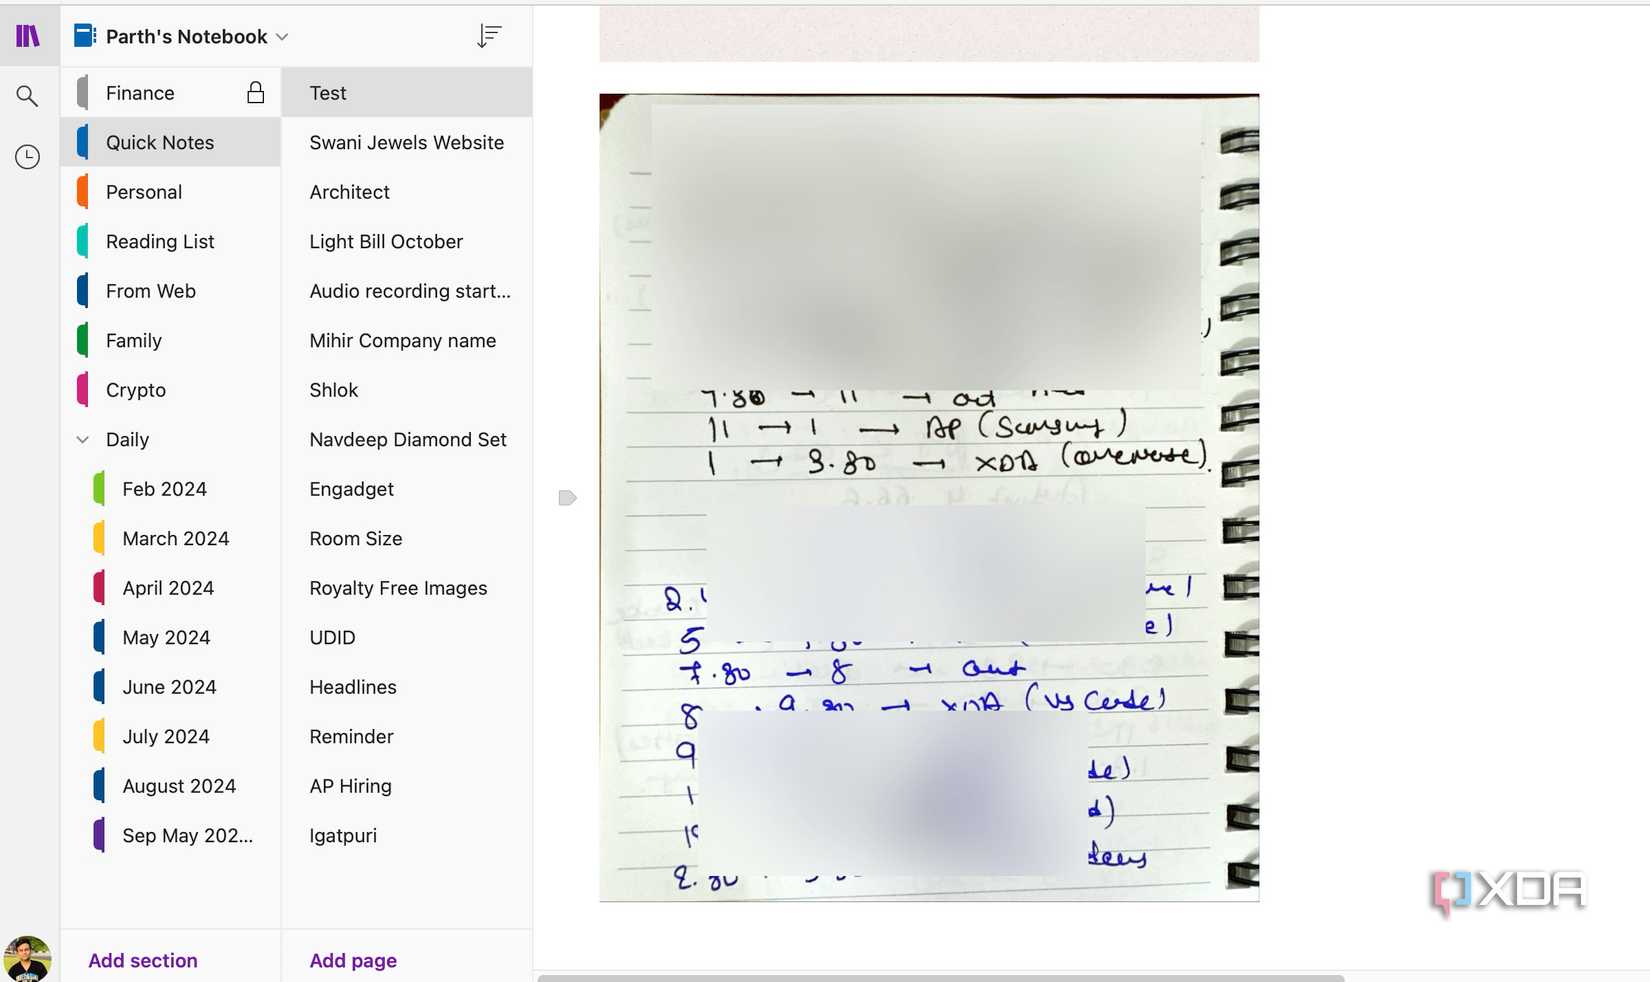 Parth's Notebook
Finance
Quick Notes
Personal
Reading List
From Web
Family
Crypto
Daily
Feb 2024
March 2024
April 2024
May 2024
June 2024
July 2024
August 2024
Sep May 202...
Add section
Test
Swani Jewels Website
Architect
Light Bill October
Audio recording start...
Mihir Company name
Shlok
Navdeep Diamond Set
Engadget
Room Size
Royalty Free Images
UDID
Headlines
Reminder
AP Hiring
Igatpuri
Add page
→ 11 → out
11 → 1 → AP (Samsung)
1 → 3.30 → XDA (
5
7.30 → 8 → out
8 9.30 → XDA (Vs Code)
9
XDA